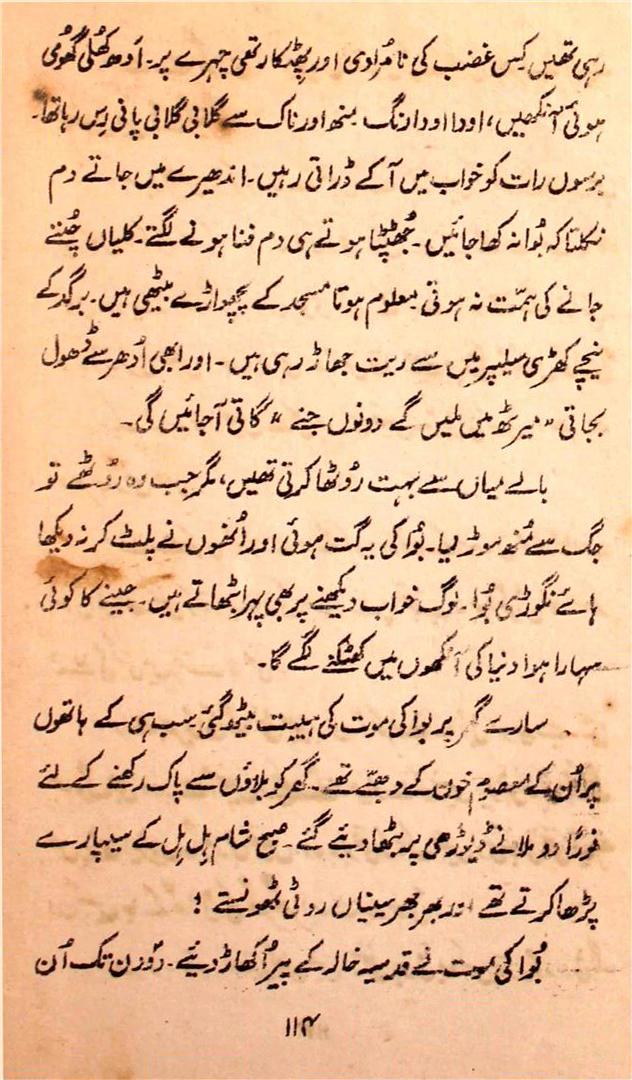 رہی تھیں کِس غضب کی نامُرادی اور پھِٹکار تھی چہرے پر۔ اَدھ کھُلی گھُومی
ہوئی آنکھیں، اودا اودا رنگ منھ اور ناک سے گلابی گلابی پانی رِس رہا تھا۔
برسوں رات کو خواب میں آکے ڈراتی رہیں۔ اندھیرے میں جاتے دم
نکلتا کہ بُوا نہ کھا جائیں۔ جُھٹپٹا ہوتے ہی دم فنا ہونے لگتے۔ کلیاں چُننے
جانے کی ہمّت نہ ہوتی معلوم ہوتا مسجد کے پچھواڑے بیٹھی ہیں۔ برگد کے
نیچے کھڑی سلیپر میں سے ریت جھاڑ رہی ہیں۔ اور ابھی اُدھر سے ڈھول
بجاتی "میرٹھ میں ملیں گے دونوں جنے" گاتی آجائیں گی۔
بالے میاں سے بہت رُوٹھا کرتی تھیں، مگر جب وہ رُوٹھے تو
جگ سے مُنھ موڑ لیا۔ بُوا کی یہ گت ہوئی اور اُنھوں نے پلٹ کر نہ دیکھا
ہائے نگوڑی بُوا۔ لوگ خواب دیکھنے پر بھی پہرا بٹھاتے ہیں۔ جینے کا کوئی
سہارا ہوا دنیا کی آنکھوں میں کھٹکنے لگے گا۔
سارے گھر پر بوا کی موت کی ہیبت بیٹھ گئی سب ہی کے ہاتھوں
پر اُن کے معصوم خون کے دھبّے تھے۔ گھر کو بلاؤں سے پاک رکھنے کے لئے
فوراً دو ملّانے ڈیوڑھی پر بٹھا دیئے گئے۔ صبح شام ہِل ہِل کے سیپارے
پڑھا کرتے تھے اور بھر بھر سینیاں روٹی ٹھونستے!
بُوا کی موت نے قدسیہ خالہ کے پیر اُکھاڑ دیئے۔ دو دن تک اُن
۱۱۴